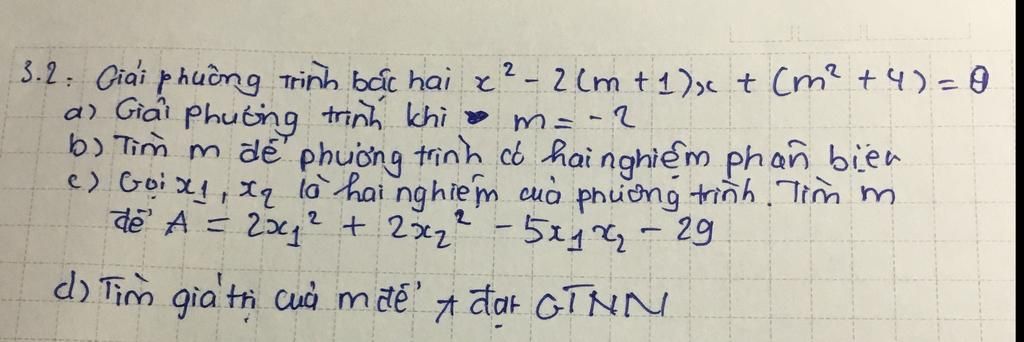 3.2. Giải phương trình bậc hai x² - 2(m + 1)x + (m² + 4) = 0
a) Giải phương trình khi m = -2
b) Tìm m để phương trình có hai nghiệm phân biệt
c) Gọi x₁, x₂ là hai nghiệm của phương trình. Tìm m
để A = 2x₁² + 2x₂² - 5x₁x₂ - 29
d) Tìm giá trị của m để A đạt GTNN